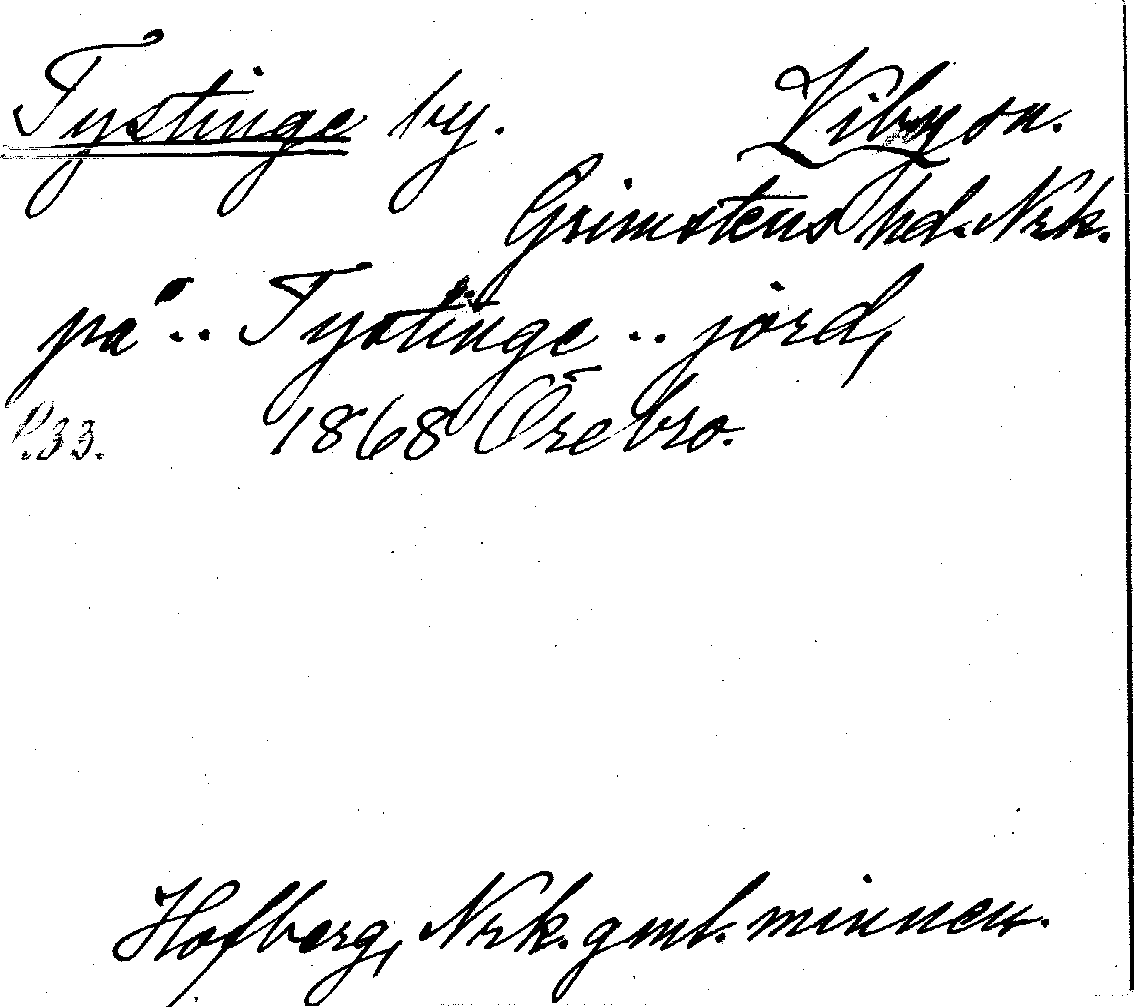 Tystinge by. Viby sn.
Grimstens hd. Nrk.
på .. Tystinge .. jord,
P. 33. 1868 Örebro.
Hofberg, Nrk. gml. minnen.